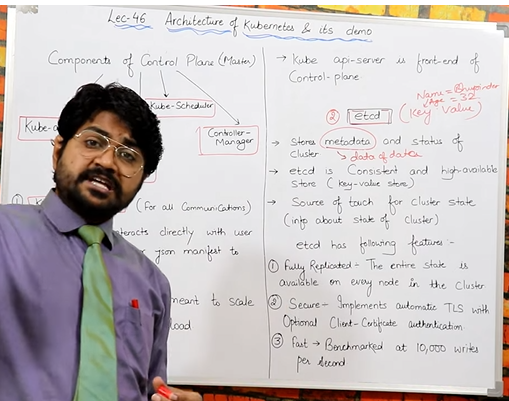 Lec-46 Architecture of Kubernetes & its demo
Components of Control Plane (Master)
Kube-Scheduler
Kube-a
Controller-
Manager
①
(For all Communications)
teracts directly with user
r json manifest to
meant to scale
load
→ Kube api-server is front-end of
Control-plane
Name = Bhupinder
Age = 32
② etcd (Key Value)
→ Stores metadata and status of
Cluster → data of data
→ etcd is Consistent and high-available
Store (key-value store)
→ Source of touch for Cluster state
(info about state of Cluster)
etcd has following features -
① Fully Replicated - The entire state is
available on every node in the Cluster
② Secure - Implements automatic TLS with
Optional Client-Certificate authentication
③ Fast → Benchmarked at 10,000 writes
per Second